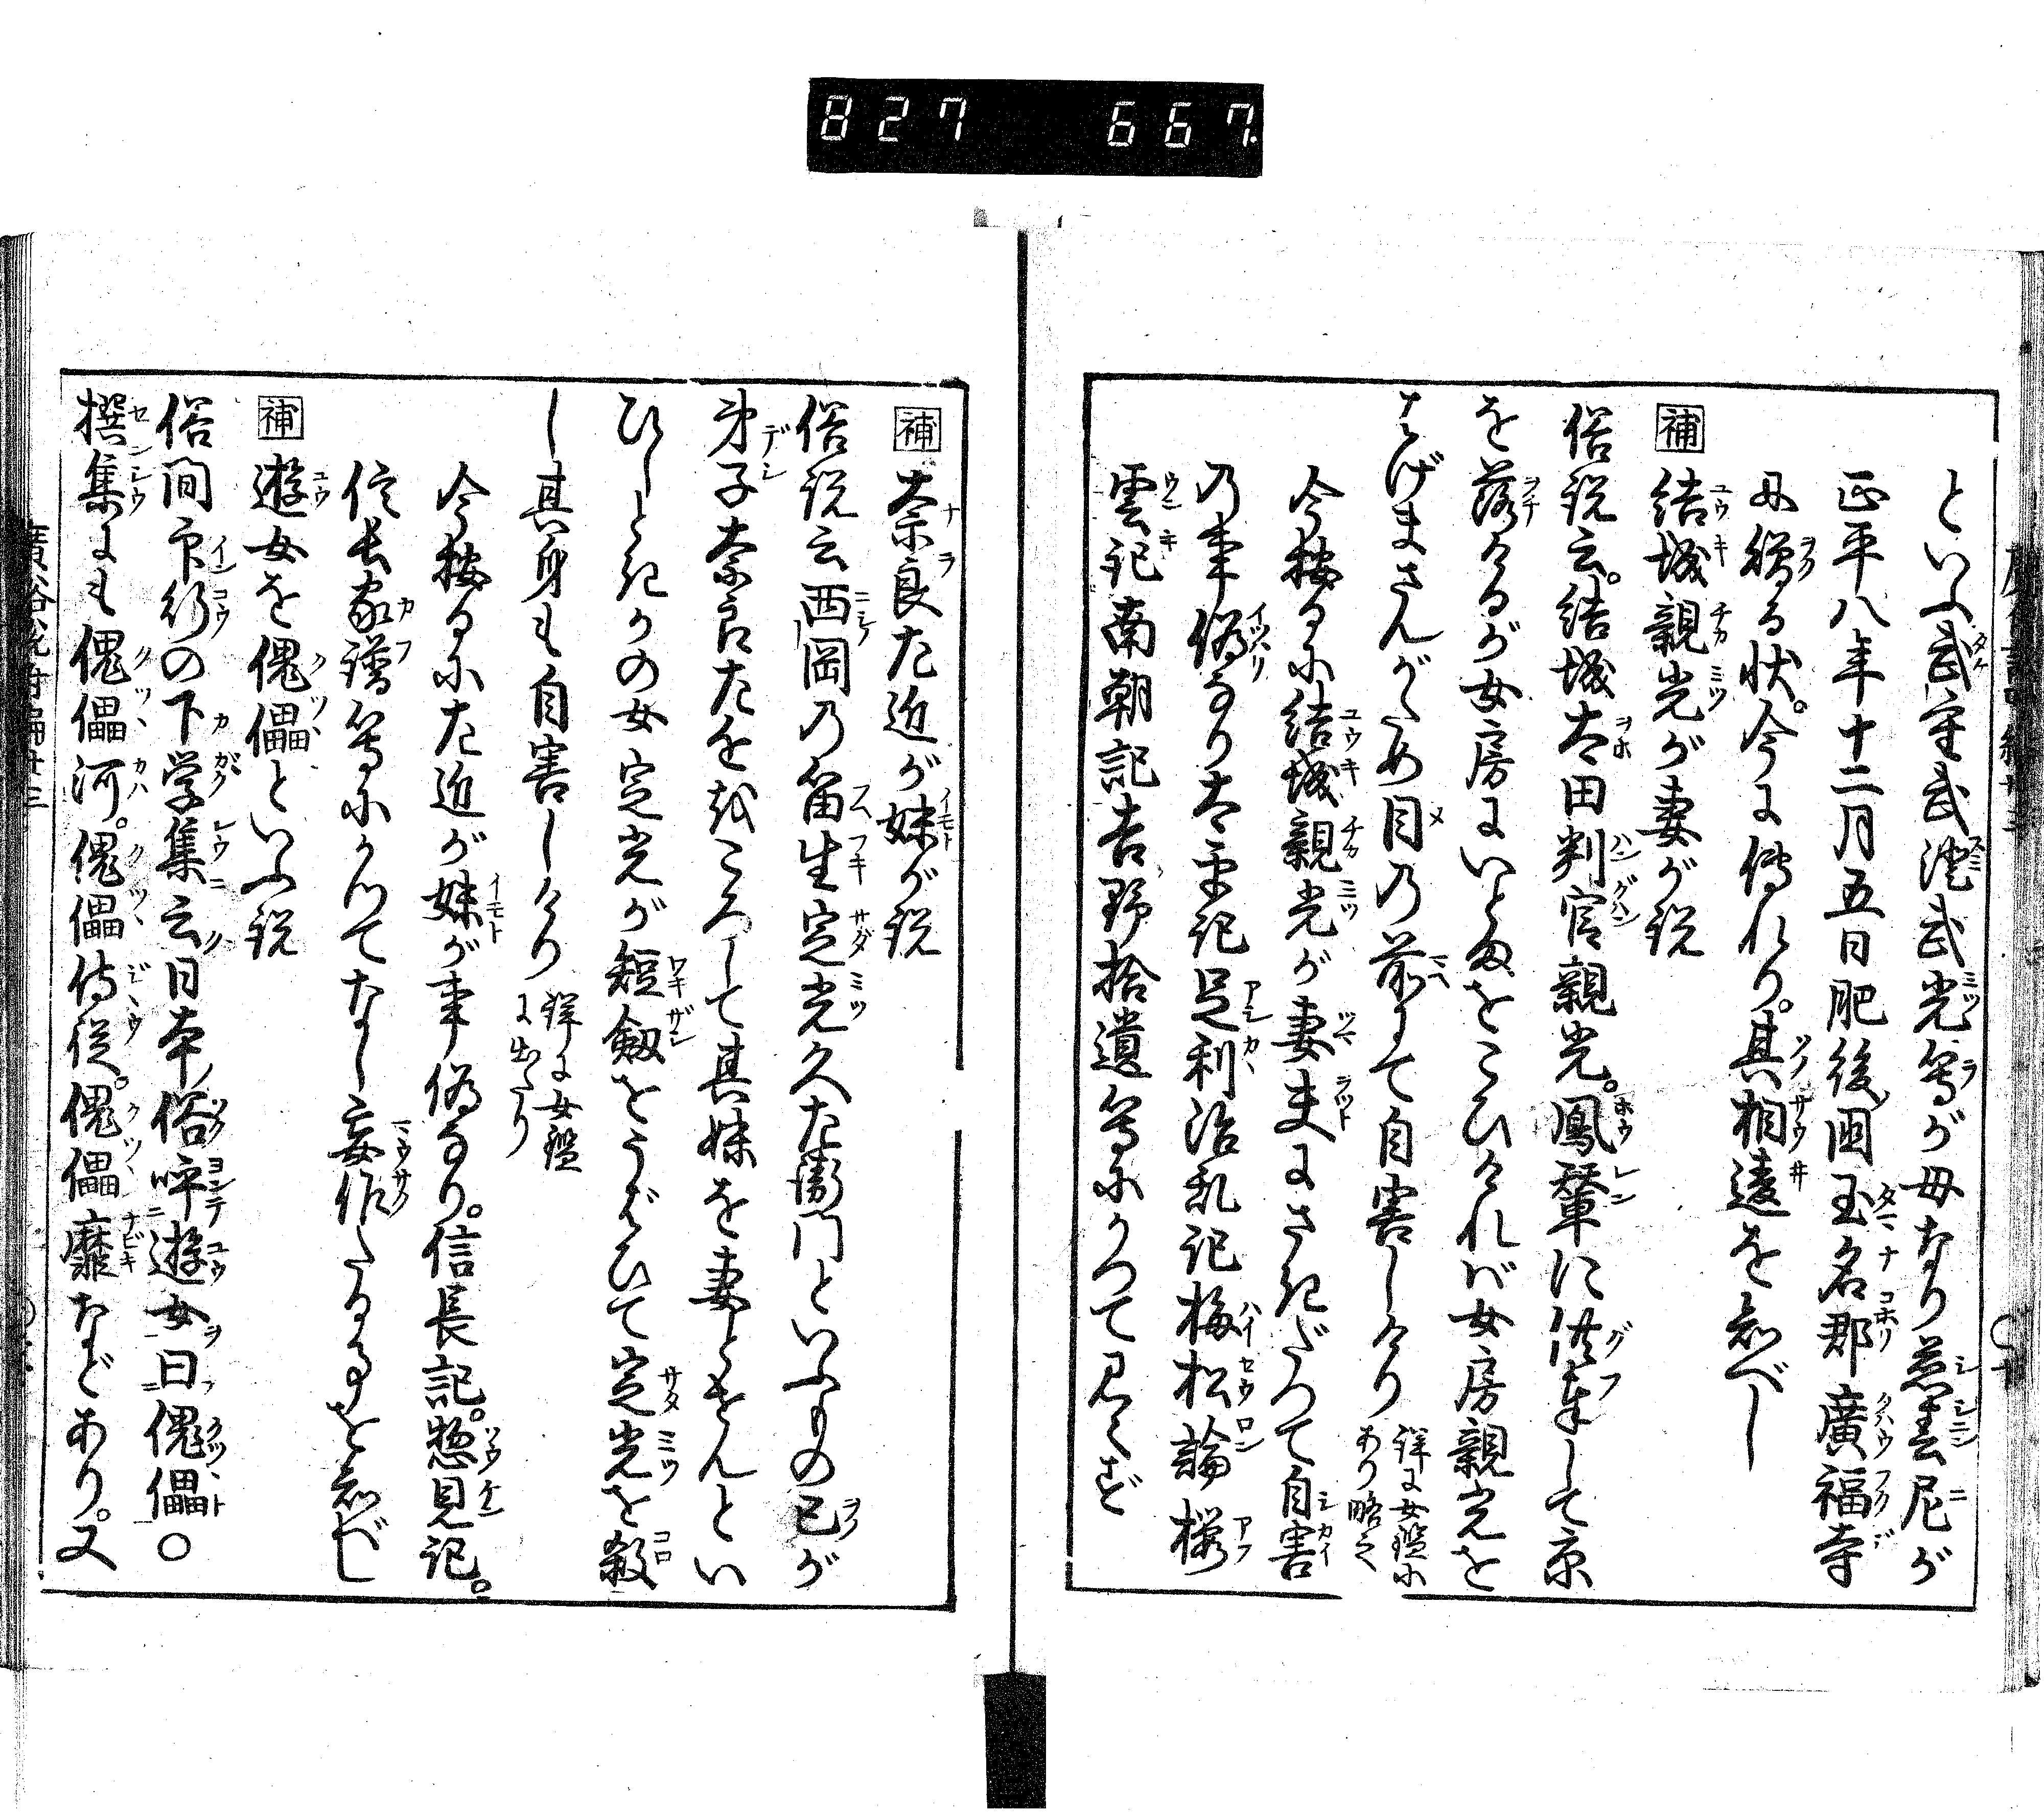 827 667
といふ武重武澄武光等が母なり慈春尼が
正平八年十二月五日肥後国玉名郡廣福寺
に贈る状。今に傳れり。其相違を知べし
補 結城親光が妻が説
俗説云。結城太田判官親光。鳳輦に供奉して京
を落けるが女房にいとまをこひければ女房親光を
はげまさんがため目の前にて自害しけり 詳に女鑑に あり略之
今按るに結城親光が妻夫にさきだつて自害
の事偽なり太平記足利治乱記梅松論桜
雲記南朝記吉野拾遺等にかつて見へず
補 奈良左近が妹が説
俗説云西岡の笛生定光久左衛門といふもの己が
弟子奈良左近をころして其妹を妻とせんとい
ひしときかの女定光が短劔をうばひて定光を殺
し其身も自害しけり 詳に女鑑 に出たり
今按るに左近が妹が事偽なり。信長記。惣見記。
信長家譜等にかつてなし妄作たる事を知べし
補 遊女を傀儡といふ説
俗間印行の下学集云日本ノ俗呼遊女曰傀儡〇
撰集にも傀儡河。傀儡侍従。傀儡靡などあり。又
廣俗説弁編廿三